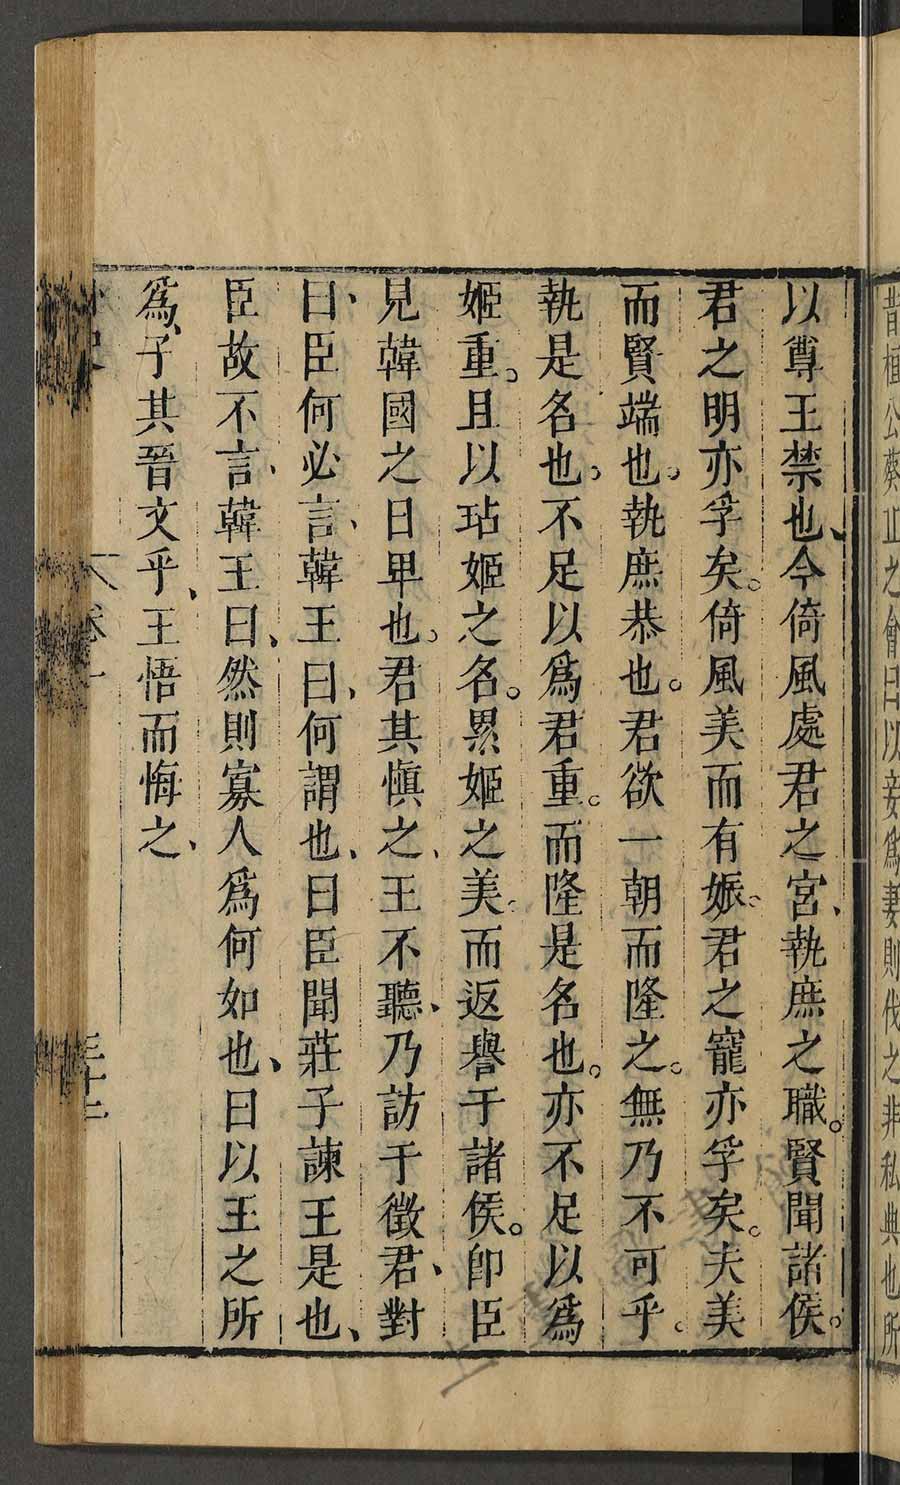 昔桓公葵丘之會曰以妾爲妻則伐之非私典也所
以尊王禁也今倚風處君之宮執庶之職賢聞諸侯
君之明亦孚矣倚風美而有娠君之寵亦孚矣夫美
而賢端也執庶恭也君欲一朝而隆之無乃不可乎
執是名也不足以爲君重而隆是名也亦不足以爲
姬重且以玷姬之名累姬之美而返譽于諸侯卽臣
見韓國之日卑也君其愼之王不聽乃訪于徵君對
曰臣何必言韓王曰何謂也曰臣聞莊子諫王是也
臣故不言韓王曰然則寡人爲何如也曰以王之所
爲子其晉文乎王悟而悔之